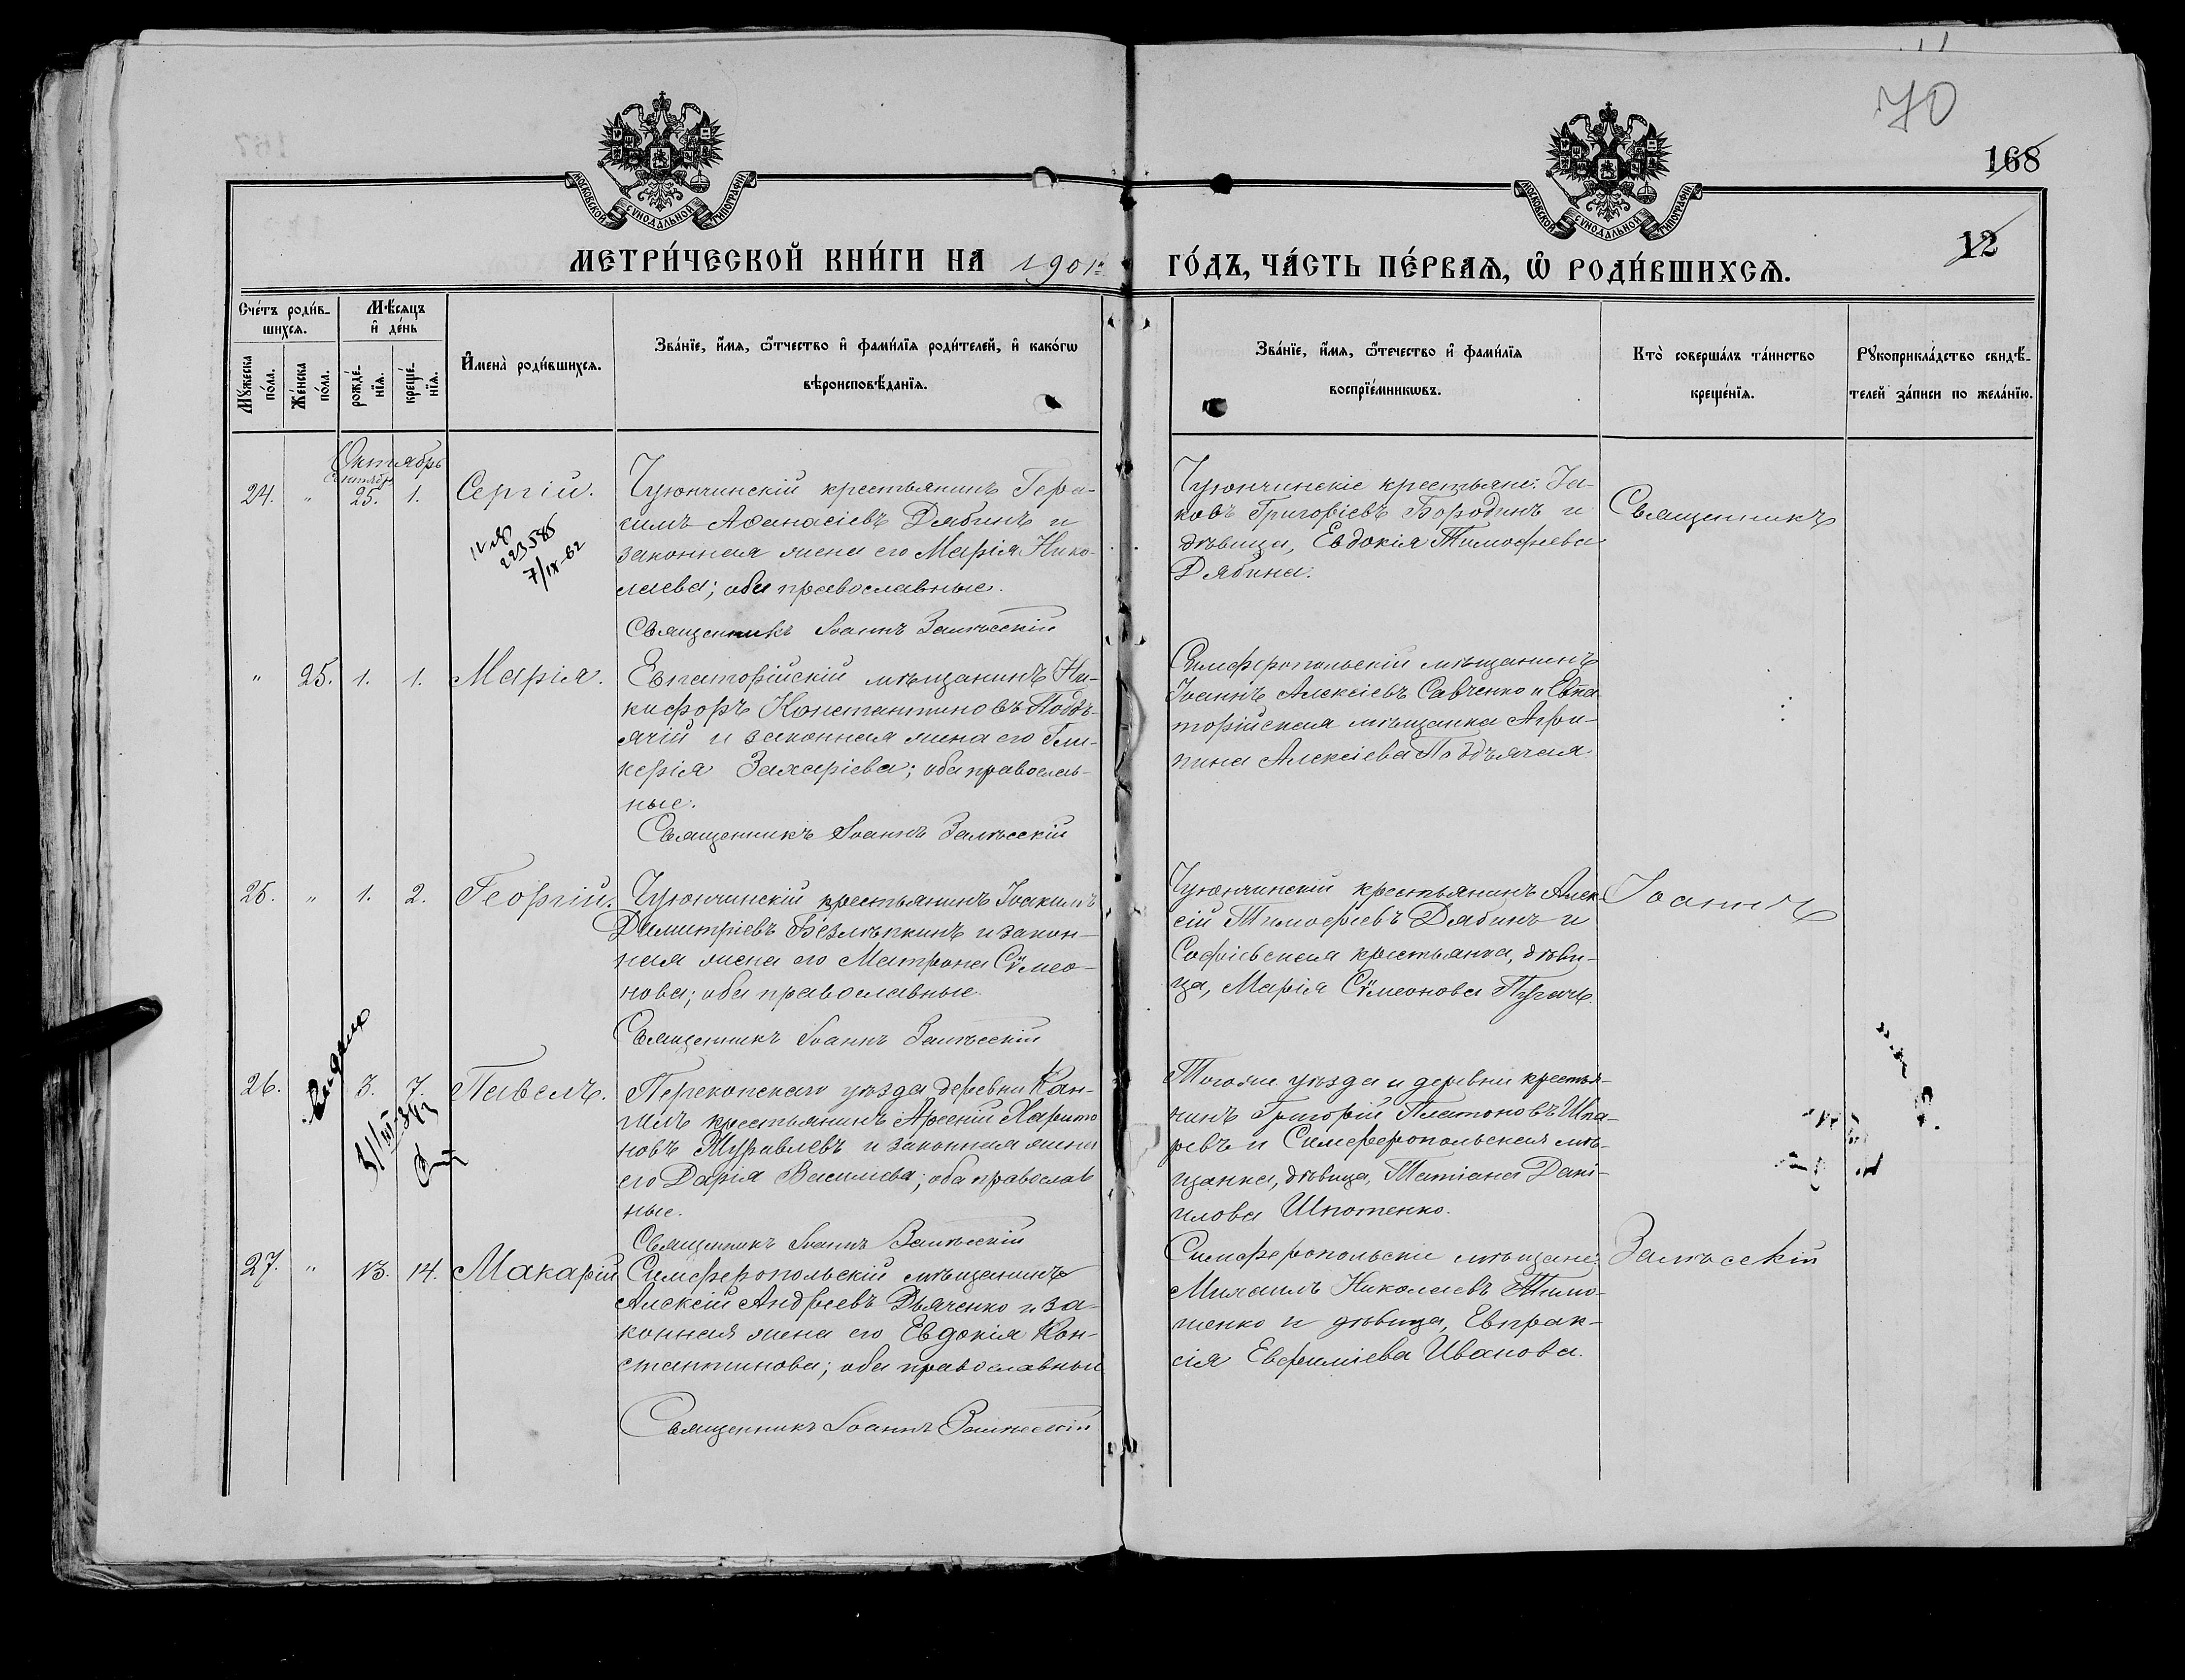 70
168
12
МОСКОВСКОЙ СУНОДАЛЬНОЙ ТИПОГРАФІИ
МОСКОВСКОЙ СУНОДАЛЬНОЙ ТИПОГРАФІИ
МЕТРИ́ЧЕСКОЙ КНИ́ГИ НА 1901 ГО́ДЪ, ЧА́СТЬ ПЕ́РВАѦ, Ѡ҆ РОДИ́ВШИХСѦ.
Сче́тъ роди́в-
шихсѧ.
Мѣ́сяцъ
и҆ де́нь
Мꙋ́жеска
по́ла.
Же́нска
по́ла.
рожде́-
нїѧ.
креще́-
нїѧ.
И҆мена̀ роди́вшихсѧ.
Зва́нїе, и҆́мѧ, ѻ҆́тчество и҆ фами́лїѧ роди́телей, и҆ како́гѡ
вѣроисповѣ́данїѧ.
Зва́нїе, и҆́мѧ, ѻ҆те́чество и҆ фами́лїѧ
воспрїе́мникѡвъ.
Кто̀ соверша́лъ та́инство
креще́нїѧ.
Рꙋкоприкла́дство свидѣ́-
телей за́писи по жела́нїю.
Октябрь
Сентябр.
24. " 25. 1. Сергій.
223585
7/IX-62
Чуюнчинскій крестьянинъ Гера-
симъ Аѳанасіевъ Дябинъ и
законная жена его Марія Нико-
лаева; оба православные.
Священникъ Іоаннъ Залѣсскій
Чуюнчинскіе крестьяне: Іа-
ковъ Григоріевъ Бородинъ и
дѣвица, Евдокія Тимофеева
Дябина.
Священникъ
" 25. 1. 1. Марія.
Евпаторійскій мѣщанинъ Ни-
кифоръ Константиновъ Поддъ-
ячій и законная жена его Гли-
керія Захаріева; оба православ-
ные.
Священникъ Іоаннъ Залѣсскій
Симферопольскій мѣщанинъ
Іоаннъ Алексіевъ Савченко и Евпа
торійская мѣщанка Агри-
пина Алексіева Поддъячая.
25. " 1. 2. Георгій.
Чуюнчинскій крестьянинъ Іоакимъ
Димитріевъ Безлѣпкинъ и закон-
ная жена его Матрона Сѵмео-
нова; оба православные.
Священникъ Іоаннъ Залѣсскій
Чуюнчинскій крестьянинъ Алек
сій Тимофеевъ Дябинъ и
Софіевская крестьянка, дѣви-
ца, Марія Сѵмеонова Пугачъ.
Іоаннъ
26. 3. 7. Павелъ.
Перекопскаго уѣзда деревни Кан-
гилъ крестьянинъ Арсеній Харито
новъ Муравлевъ и законная жена
его Дарія Василіева; оба православ
ные.
Священникъ Іоаннъ Залѣсскій
Тогоже уѣзда и деревни крестья-
нинъ Григорій Платоновъ Шпа-
ревъ и Симферопольская мѣ-
щанка, дѣвица, Татіана Дані-
илова Шпотенко.
27. " 13. 14. Макарій
Симферопольскій мѣщанинъ
Алексій Андреевъ Дьяченко и за-
конная жена его Евдокія Кон-
стантинова; оба православные
Священникъ Іоаннъ Залѣсскій
Симферопольскіе мѣщане:
Михаилъ Николаевъ Тимо-
шенко и дѣвица, Еврак-
сія Евфиміева Иванова.
Залѣсскій